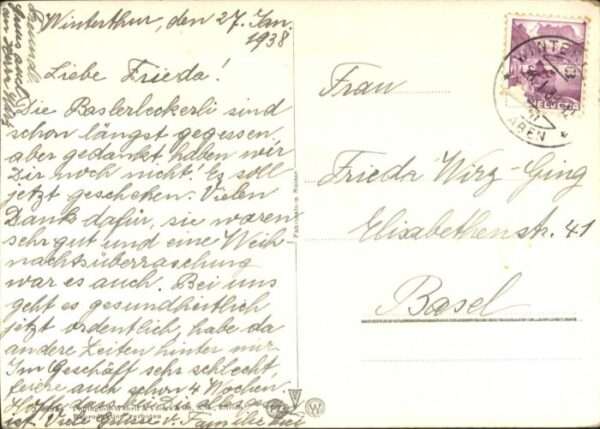 Winterthur, den 27. Jan.
1938
Liebe Frieda!
Die Baslerleckerli sind
schon längst gegessen,
aber gedankt haben wir
Dir noch nicht. Es soll
jetzt geschehen. Vielen
Dank dafür, sie waren
sehr gut und eine Weih-
nachtsüberraschung
war es auch. Bei uns
geht es gesundheitlich
jetzt ordentlich, habe da
andere Zeiten hinter mir.
Im Geschäft sehr schlecht,
feiere auch schon 4 Wochen.
Hoffe dass bei Die alles
ist. Viele Grüsse v. Familie
Frau
Frieda Wirz-Ging
Elisabethenstr. 41
Basel
WINTER
HELVETIA